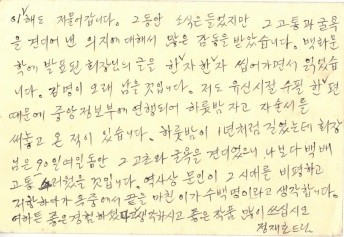 이 해도 저물어갑니다. 그동안 소식은 들었지만 그 고통과 굴욕
을 견디어 낸 의지에 대해서 많은 감동을 받았습니다. 백화문
학에 발표된 회장님의 글은 한자 한자 씹어가면서 읽었습
니다. 감명이 오래 남을 것입니다. 저도 유신시절 수필 한편
때문에 중앙정보부에 연행되어 하룻밤 자고 자술서를
써놓고 온 적이 있습니다. 하룻밤이 1년처럼 길었는데 회장
님은 90일 여일동안 그 고초와 굴욕을 견디었으니 나보다 백배
고통 것입니다. 역사상 문인이 그 시대를 비평하고
저항하다가 옥중에서 끝을 마친 이가 수백명이라고 생각합니다.
여하튼 좋은 경험하셨다고 생각하시고 좋은 작품 많이 쓰십시오
정재호드림